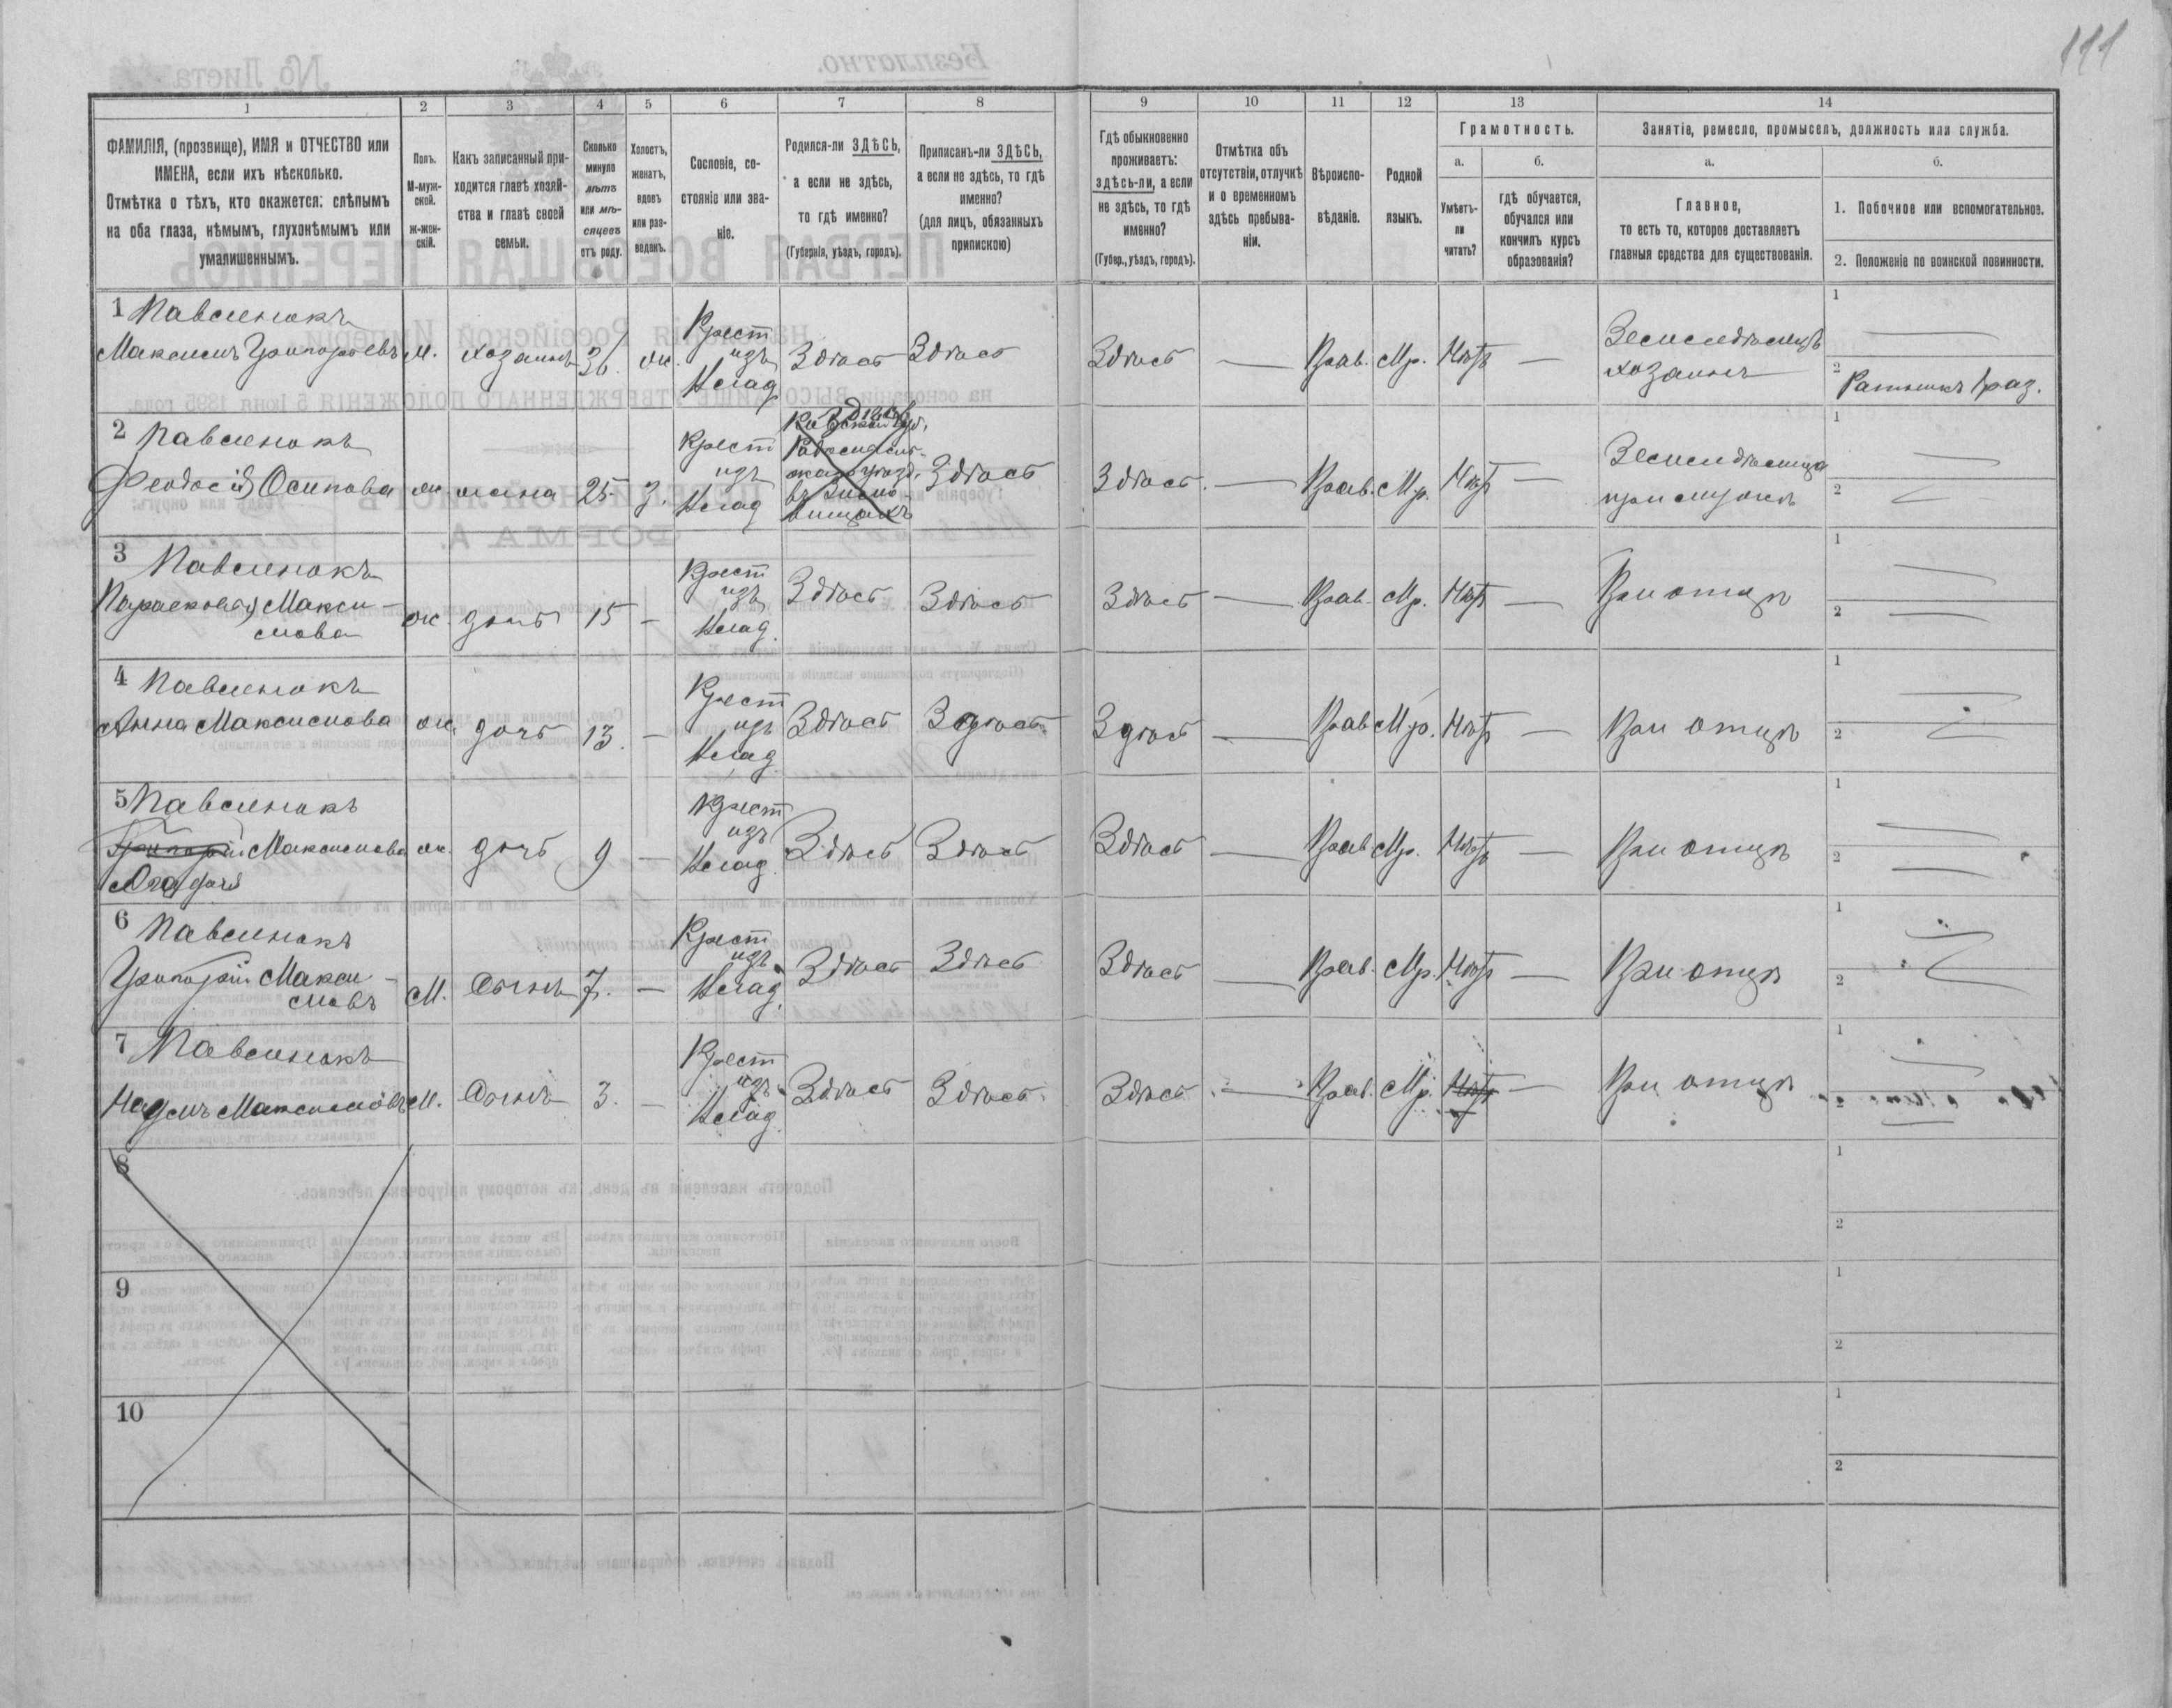 111
1
2
3
4
5
6
7
8
9
10
11
12
13
14
ФАМИЛІЯ, (прозвище), ИМЯ и ОТЧЕСТВО или
ИМЕНА, если ихъ нѣсколько.
Отмѣтка о тѣхъ, кто окажется: слѣпымъ
на оба глаза, нѣмымъ, глухонѣмымъ или
умалишеннымъ.
Полъ.
М-муж-
ской.
ж-жен-
скій.
Какъ записанный при-
ходится главѣ хозяй-
ства и главѣ своей
семьи.
Сколько
минуло
лѣтъ
или мѣ-
сяцевъ
отъ роду.
Холостъ,
женатъ,
вдовъ
или раз-
веденъ.
Сословіе, со-
стояніе или зва-
ніе.
Родился-ли ЗДѢСЬ,
а если не здѣсь,
то гдѣ именно?
(Губернія, уѣздъ, городъ).
Приписанъ-ли ЗДѢСЬ,
а если не здѣсь, то гдѣ
именно?
(для лицъ, обязанныхъ
припискою)
Гдѣ обыкновенно
проживаетъ:
здѣсь-ли, а если
не здѣсь, то гдѣ
именно?
(Губер., уѣздъ, городъ).
Отмѣтка объ
отсутствіи, отлучкѣ
и о временномъ
здѣсь пребыва-
ніи.
Вѣроиспо-
вѣданіе.
Родной
языкъ.
Грамотность.
а.
Умѣетъ-
ли
читать?
б.
гдѣ обучается,
обучался или
кончилъ курсъ
образованія?
Занятіе, ремесло, промыселъ, должность или служба.
а.
Главное,
то есть то, которое доставляетъ
главныя средства для существованія.
б.
1. Побочное или вспомогательное.
2. Положеніе по воинской повинности.
1 Павленокъ
Максимъ Григорьевъ м. хозяинъ 36. ж. Крест изъ Влад Здѣсь Здѣсь Здѣсь — Прав. Мр. Нѣтъ — Земледѣлецъ хозяинъ
1
2 Ратникъ 1 раз.
2 Павленокъ
Феодосія Осипова ж жена 25 з. Крест изъ Влад Здѣсь Здѣсь Здѣсь — Прав. Мр. Нѣтъ — Земледѣлица при мужѣ
1
2
3 Павленокъ
Парасковья Макси-
мова ж. дочь 15 — Крест изъ Влад. Здѣсь Здѣсь Здѣсь — Прав. Мр. Нѣтъ — При отцѣ
1
2
4 Павленокъ
Анна Максимова ж. дочь 13. — Крест изъ Влад. Здѣсь Здѣсь Здѣсь — Прав Мр. Нѣтъ — При отцѣ
1
2
5 Павленокъ
Григорій Максимова ж. дочь 9 — Крест изъ Влад. Здѣсь Здѣсь Здѣсь — Прав Мр. Нѣтъ — При отцѣ
1
2
6 Павленокъ
Григорій Макси-
мовъ М. Сынъ 7. — Крест изъ Влад. Здѣсь Здѣсь Здѣсь — Прав. Мр. Нѣтъ — При отцѣ
1
2
7 Павленокъ
Максимовъ М. Сынъ 3. — Крест изъ Влад. Здѣсь Здѣсь Здѣсь — Прав. Мр. Нѣтъ — При отцѣ
1
2
8
1
2
9
1
2
10
1
2